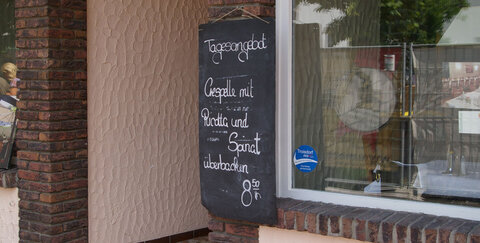 Tagesangebot
Crespelle mit
Ricotta und
Spinat
überbacken
8,50
Troisdorf